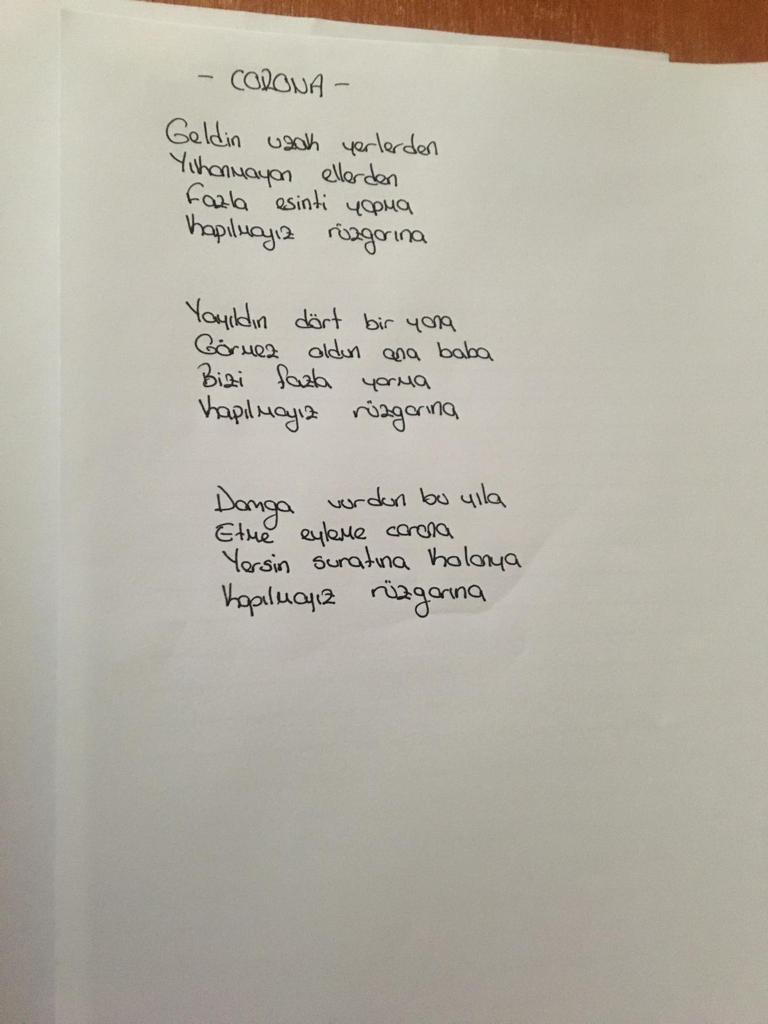 - CORONA -
Geldin uzak yerlerden
Yıkanmayan ellerden
Fazla esinti yapma
Kapılmayız rüzgarına
Yayıldın dört bir yana
Görmez oldun ana baba
Bizi fazla yorma
Kapılmayız rüzgarına
Damga vurdun bu yıla
Etme eyleme corona
Yersin suratına kolonya
Kapılmayız rüzgarına